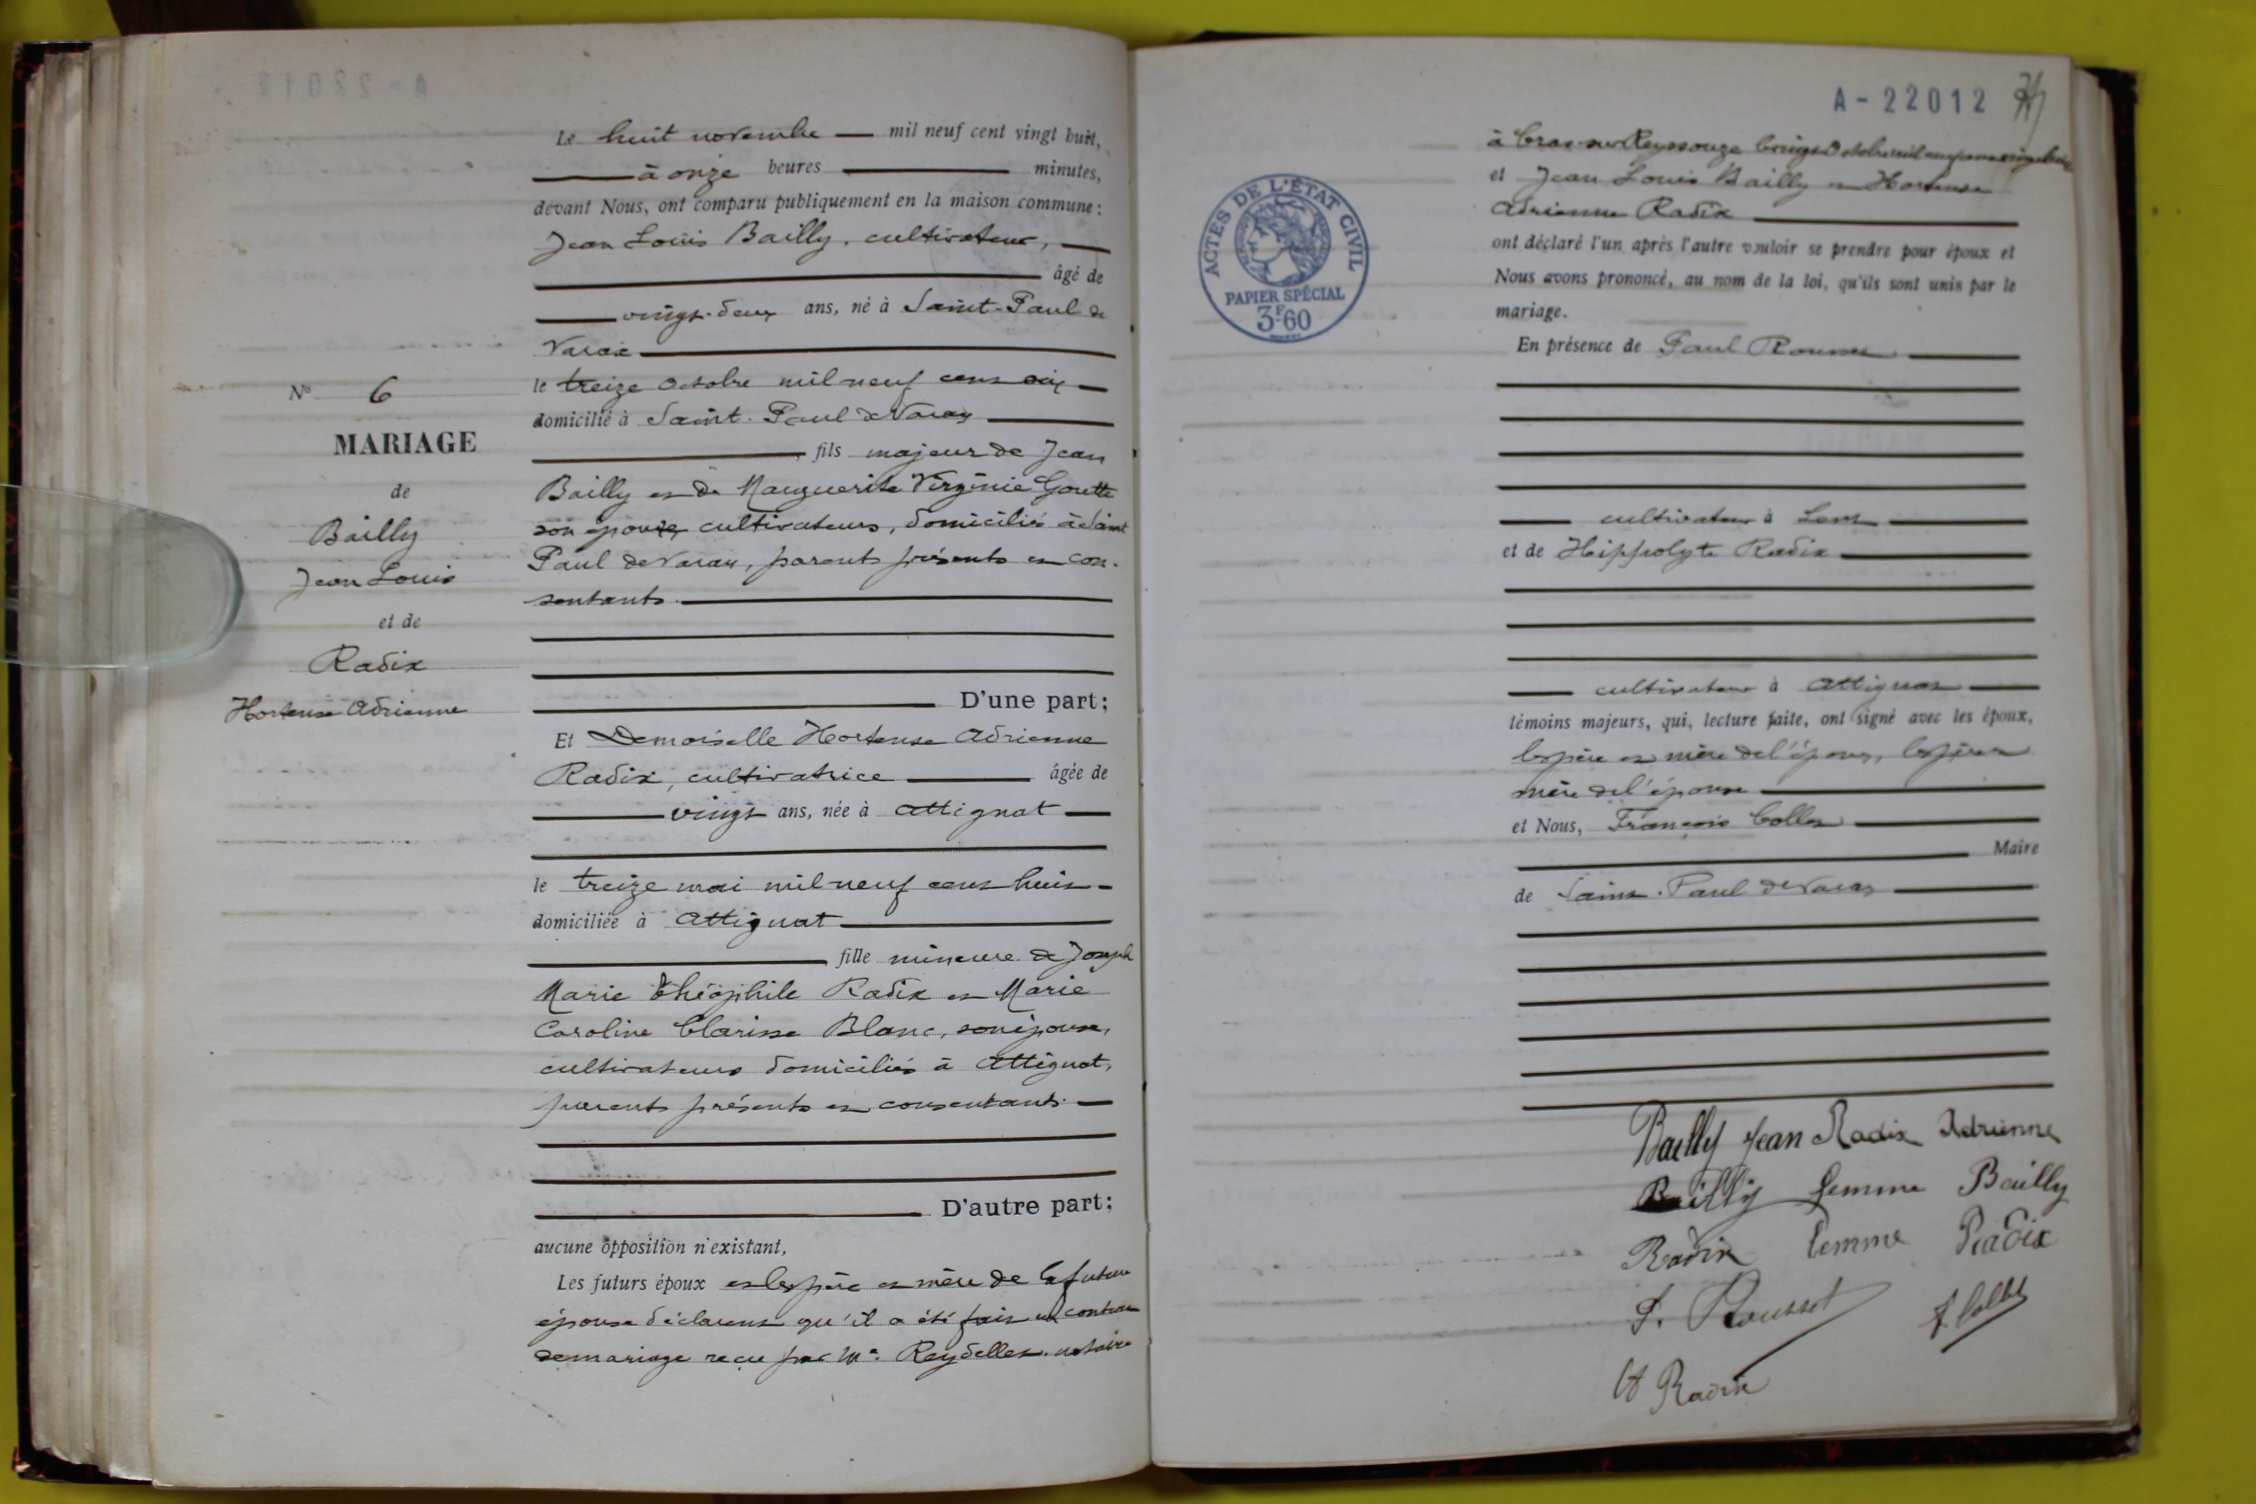 Le huit novembre mil neuf cent vingt huit,
à onze heures minutes,
devant Nous, ont comparu publiquement en la maison commune :
Jean Louis Bailly, cultivateur,
âgé de
vingt-deux ans, né à Saint-Paul de
Varax
le treize octobre mil neuf cent six
domicilié à Saint-Paul de Varax
fils majeur de Jean
Bailly et de Marguerite Virginie Goutte
son épouse, cultivateurs, domiciliés à Saint
Paul de Varax, parents présents et con-
sentants.
N° 6
MARIAGE
de
Bailly
Jean Louis
et de
Radix
Hortense Adrienne
D'une part ;
Et Demoiselle Hortense Adrienne
Radix, cultivatrice âgée de
vingt ans, née à Attignat
le treize mai mil neuf cent huit
domiciliée à Attignat
fille mineure de Joseph
Marie Théophile Radix et Marie
Caroline Clarisse Blanc, son épouse,
cultivateurs domiciliés à Attignat,
parents présents et consentants.
D'autre part ;
aucune opposition n'existant,
Les futurs époux et les père et mère de la future
épouse déclarent qu'il a été fait un contrat
de mariage reçu par Me Reydellet, notaire
A-22012
à Cras-sur-Reyssouze le vingt octobre mil neuf cent vingt huit
et Jean Louis Bailly et Hortense
Adrienne Radix
ont déclaré l'un après l'autre vouloir se prendre pour époux et
Nous avons prononcé, au nom de la loi, qu'ils sont unis par le
mariage.
En présence de Paul Rousset
cultivateur à Lent
et de Hippolyte Radix
cultivateur à Attignat
témoins majeurs, qui, lecture faite, ont signé avec les époux,
les père et mère de l'époux, les père et
mère de l'épouse
et Nous, François Collet
Maire
de Saint-Paul de Varax
ACTES DE L'ÉTAT CIVIL
PAPIER SPÉCIAL
3F60
Bailly Jean Radix Adrienne
Bailly femme Bailly
Radix femme Radix
P. Rousset F Collet
H Radix